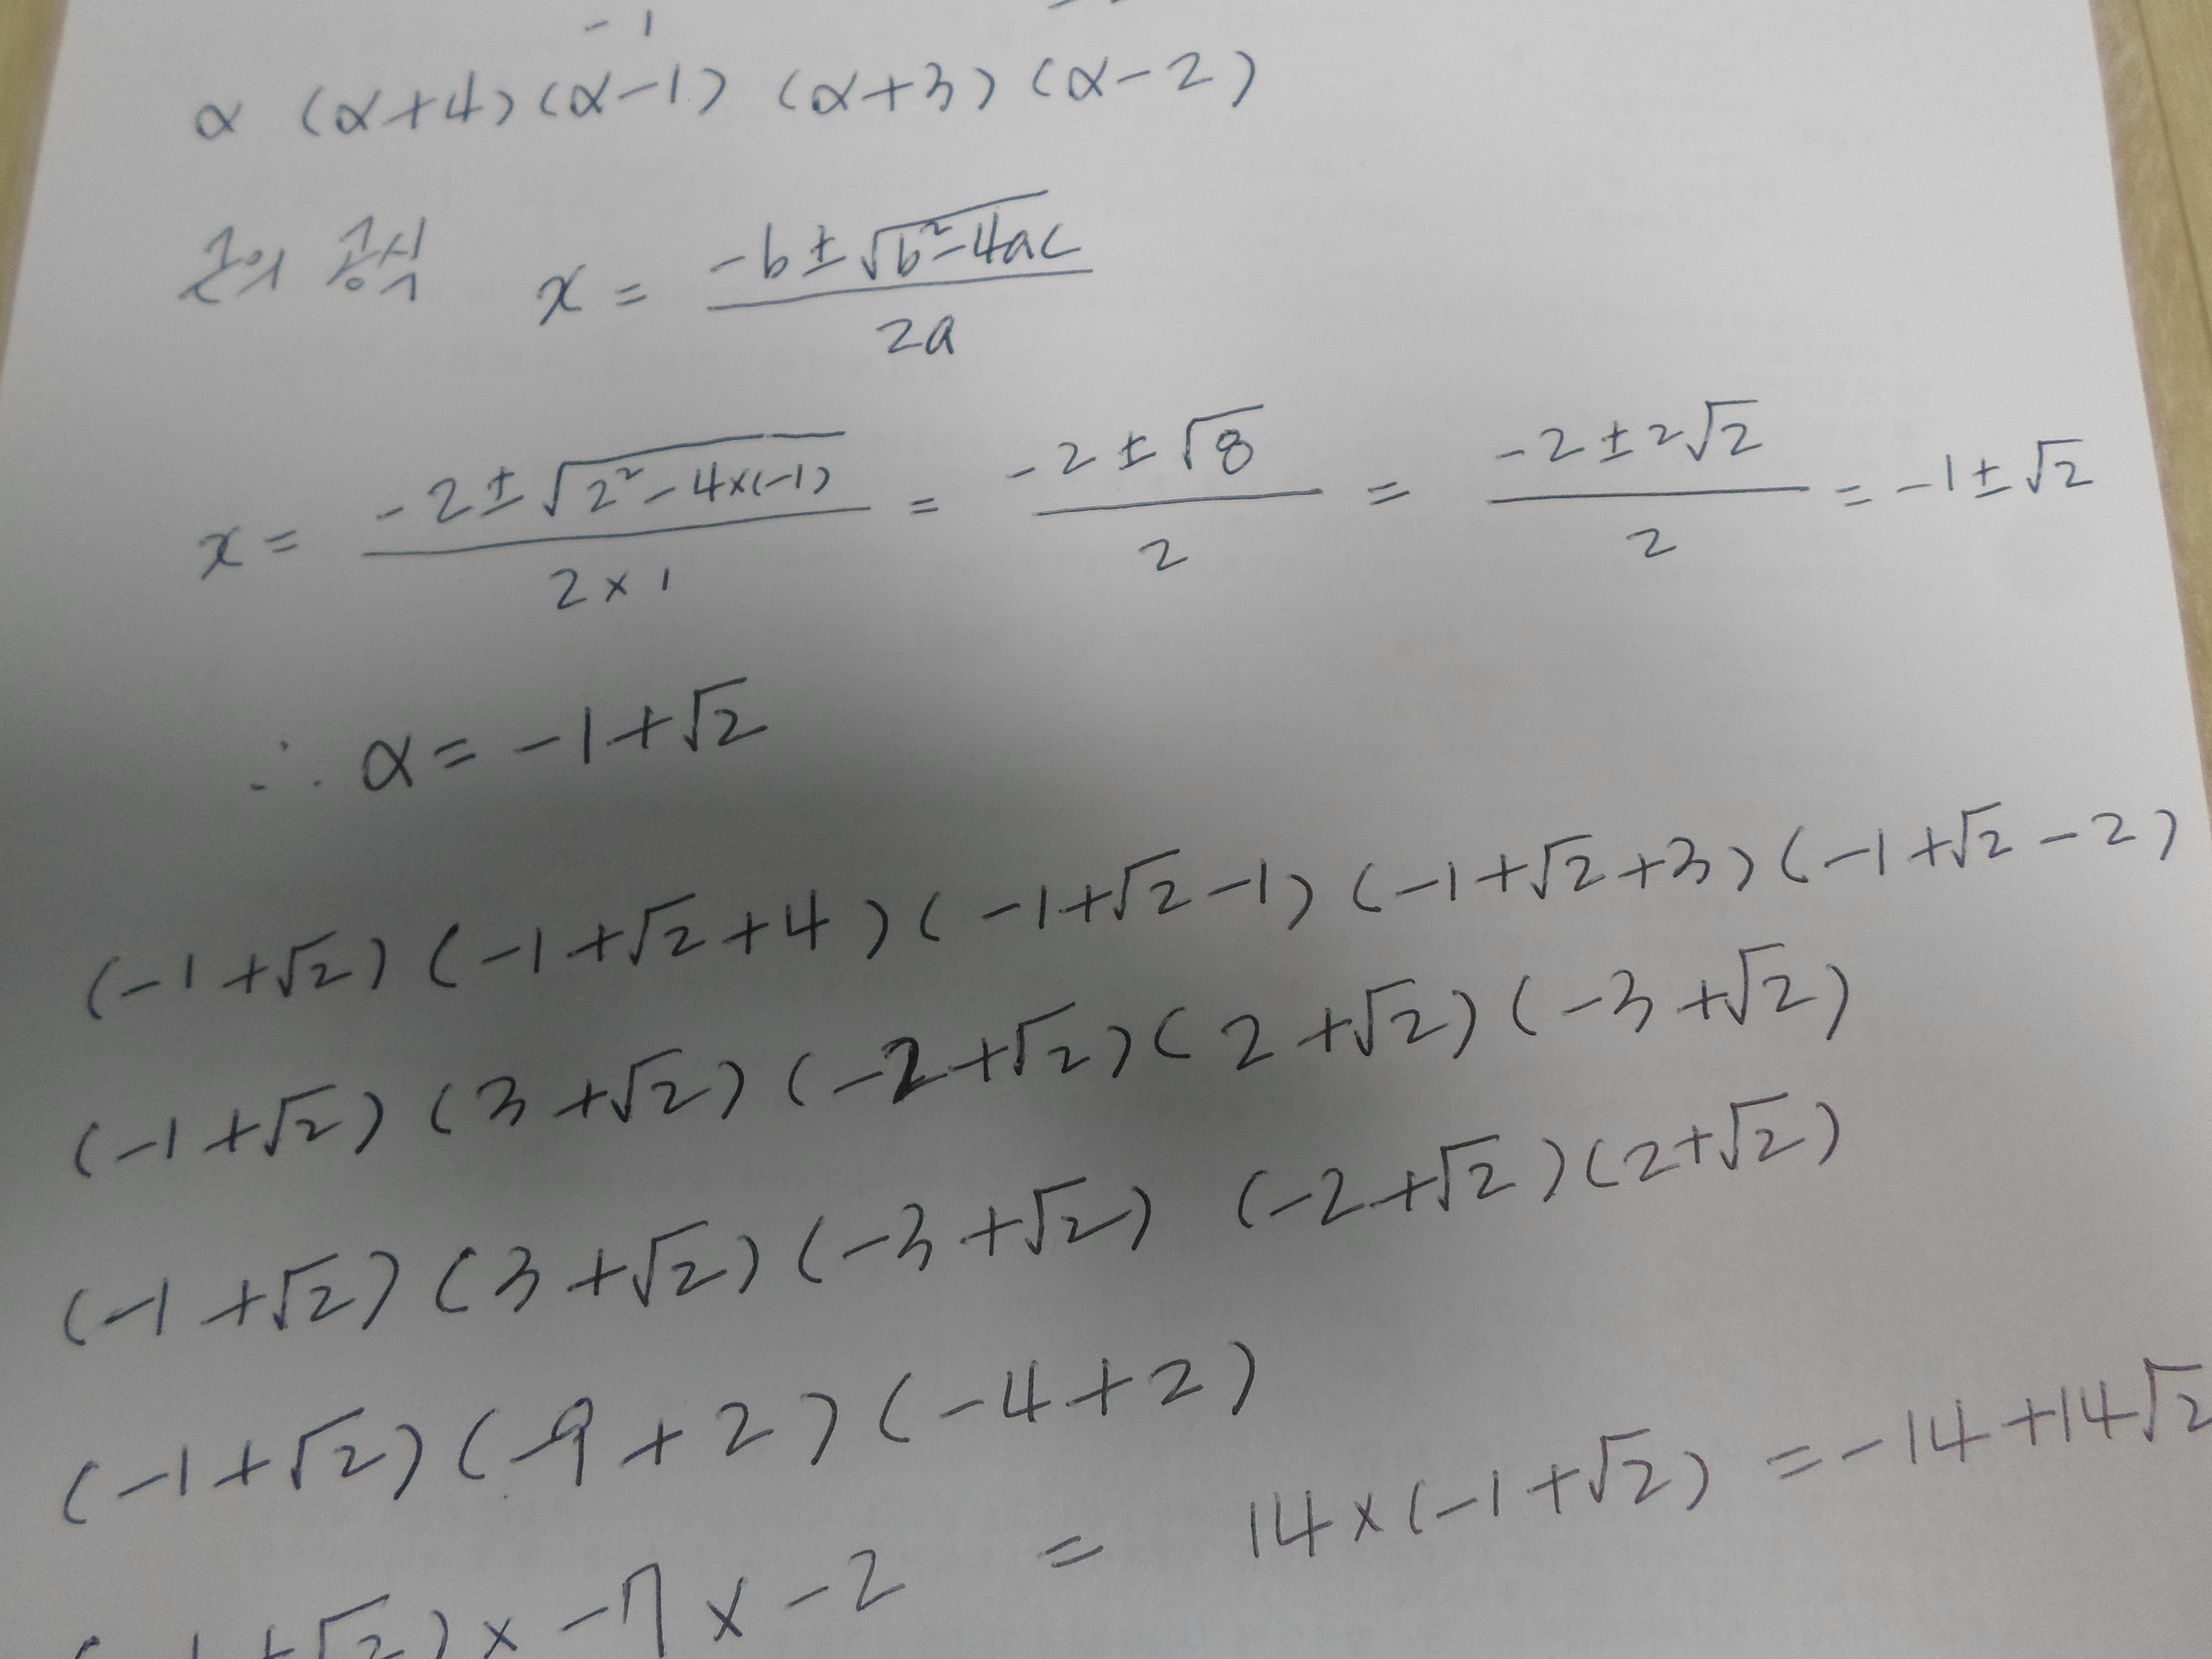 -1
α (α+4)(α-1) (α+3)(α-2)
근의 공식 x = (-b±√(b²-4ac))/(2a)
x = (-2±√(2²-4×(-1)))/(2×1) = (-2±√8)/2 = (-2±2√2)/2 = -1±√2
∴ α = -1+√2
(-1+√2)(-1+√2+4)(-1+√2-1)(-1+√2+3)(-1+√2-2)
(-1+√2)(3+√2)(-2+√2)(2+√2)(-3+√2)
(-1+√2)(3+√2)(-3+√2) (-2+√2)(2+√2)
(-1+√2)(-9+2)(-4+2)
(-1+√2)×-7×-2 = 14×(-1+√2) = -14+14√2